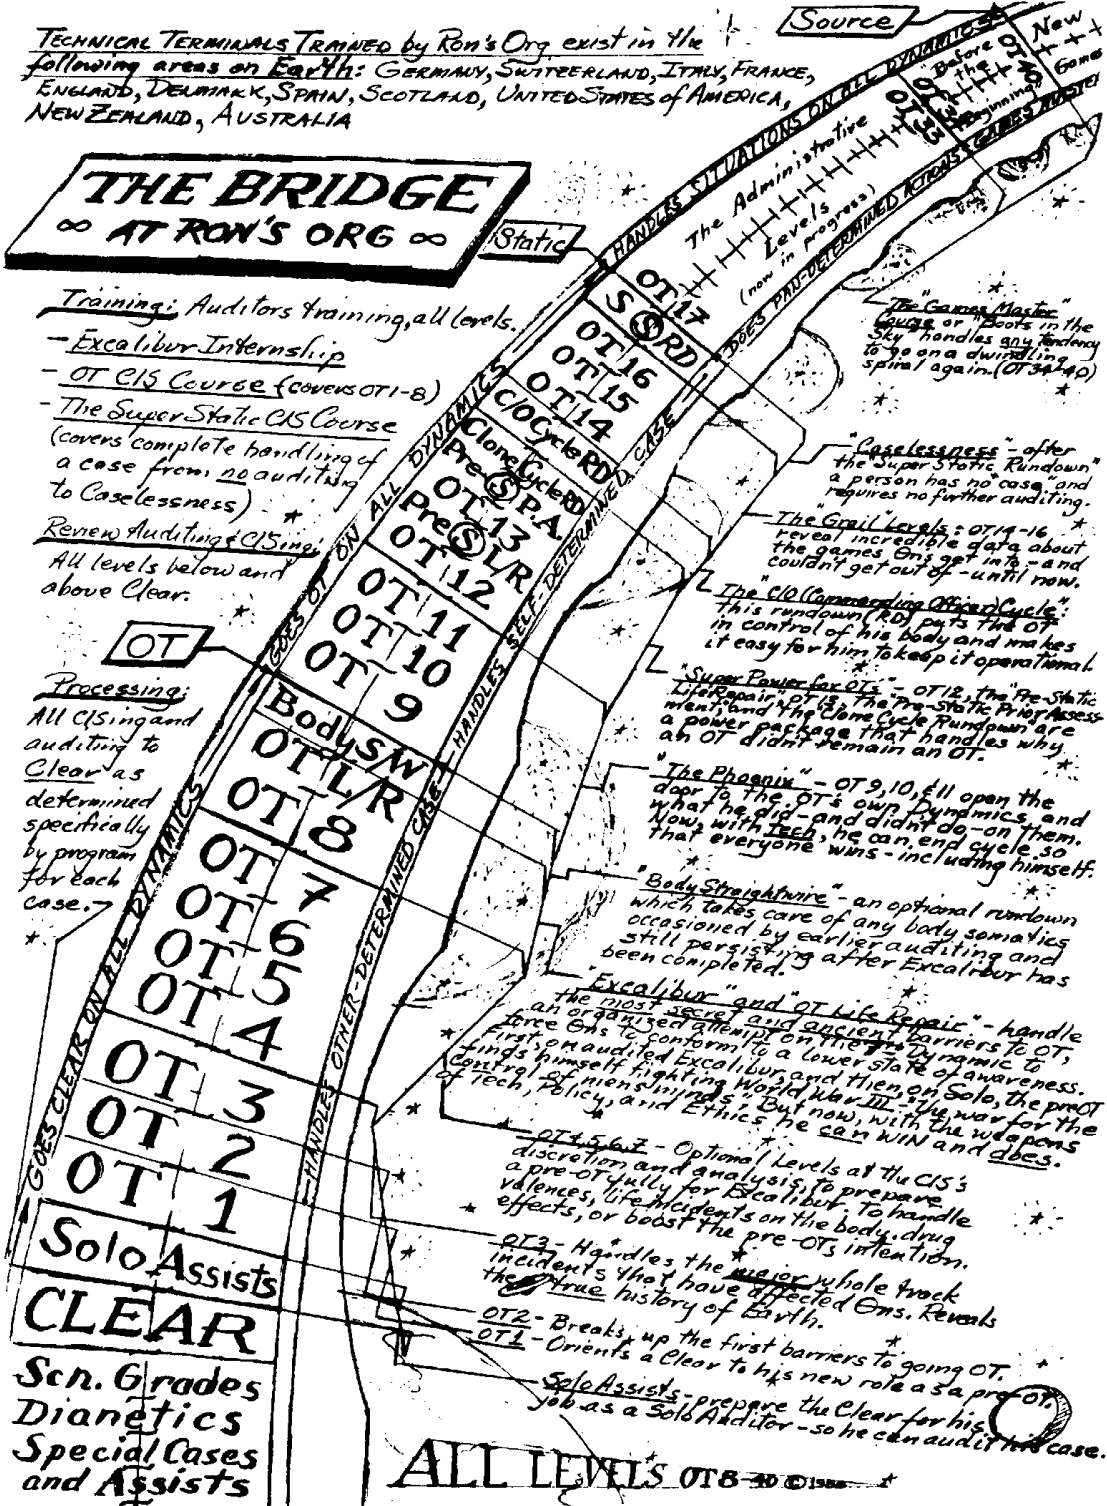 Source
TECHNICAL TERMINALS TRAINED by Ron's Org exist in the
following areas on Earth: GERMANY, SWITZERLAND, ITALY, FRANCE,
ENGLAND, DENMARK, SPAIN, SCOTLAND, UNITED STATES of AMERICA,
NEW ZEALAND, AUSTRALIA
THE BRIDGE
∞ AT RON'S ORG ∞
Static
Training: Auditors training, all levels.
- Excalibur Internship
- OT C/S Course (covers OT1-8)
- The Super Static C/S Course
(covers complete handling of
a case from no auditing
to Caselessness)
Review Auditing & C/Sing:
All levels below and
above Clear.
OT
Processing:
All C/Sing and
auditing to
Clear as
determined
specifically
by program
for each
case.
New
Games
OT 40
"Before
the
Beginning"
OT 33
The Administrative
Levels
(now in progress)
HANDLES SITUATIONS ON ALL DYNAMICS
DOES PAN-DETERMINED ACTIONS & GAMES MASTER
OT 17
S S RD
OT 16
OT 15
OT 14
C/O Cycle RD
Clone Cycle RD
Pre S P.A.
OT 13
Pre S L/R
OT 12
OT 11
OT 10
OT 9
Body S/W
OT L/R
OT 8
OT 7
OT 6
OT 5
OT 4
OT 3
OT 2
OT 1
Solo Assists
CLEAR
Scn. Grades
Dianetics
Special Cases
and Assists
GOES OT ON ALL DYNAMICS
HANDLES SELF-DETERMINED CASE
GOES CLEAR ON ALL DYNAMICS
HANDLES OTHER-DETERMINED CASE
The "Games Master"
Course or "Boots in the
Sky" handles any tendency
to go on a dwindling
spiral again. (OT 34-40)
"Caselessness" - after
the "Super Static Rundown"
a person has no case, and
requires no further auditing.
The "Grail" Levels: OT14-16
reveal incredible data about
the games Θns get into - and
couldn't get out of - until now.
The "C/O (Commanding Officer) Cycle":
this rundown (RD) puts the OT
in control of his body and makes
it easy for him to keep it operational.
"Super Power for OTs" - OT12, the "Pre-Static
Life Repair", OT13, The "Pre-Static Prior Assess-
ment" and "The Clone Cycle Rundown are
a power package that handles why
an OT didn't remain an OT.
"The Phoenix" - OT 9, 10, & 11 open the
door to the OT's own Dynamics, and
what he did - and didn't do - on them.
Now, with Tech, he can end cycle so
that everyone wins - including himself.
"Body Straightwire" - an optional rundown
which takes care of any body somatics
occasioned by earlier auditing and
still persisting after Excalibur has
been completed.
"Excalibur" and "OT Life Repair" - handle
the most secret and ancient barriers to OT,
an organized attempt on the Dynamic to
force Θns to conform to a lower state of awareness.
First, on audited Excalibur, and then, on Solo, the preOT
finds himself fighting World War III. "The war for the
Control of men's minds." But now, with the weapons
of Tech, Policy, and Ethics he can WIN and does.
OT4,5,6,7 - Optional Levels at the C/S's
discretion and analysis, to prepare
a pre-OT fully for Excalibur. To handle
valences, life incidents on the body, drug
effects, or boost the pre-OTs intention.
OT3 - Handles the major whole track
incidents that have affected Θns. Reveals
the true history of Earth.
OT2 - Breaks up the first barriers to going OT.
OT1 - Orients a Clear to his new role as a pre-OT.
Solo Assists - prepare the Clear for his
job as a Solo Auditor - so he can audit his case.
ALL LEVELS OT8-40 ©